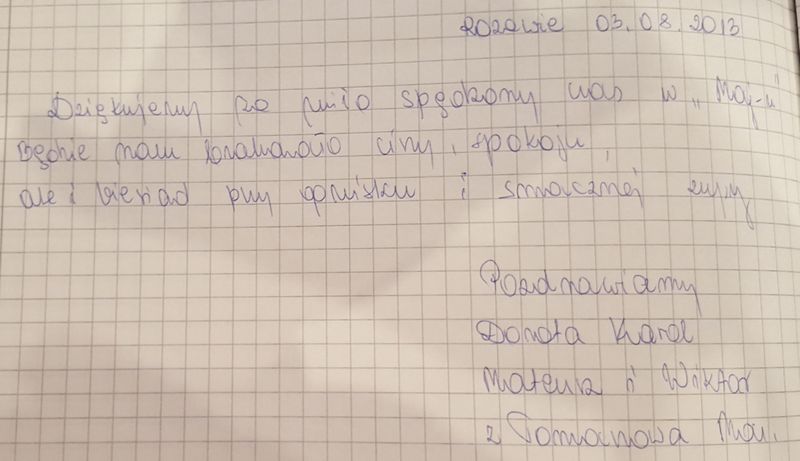 Rozewie 03.08.2013
Dziękujemy za miło spędzony czas w „Maj-u"
Będzie nam brakowało ciszy, spokoju,
ale i biesiad przy ognisku i smacznej zupy
Pozdrawiamy
Donata Karol
Mateusz i Wiktor
z Tomaszowa Maz.